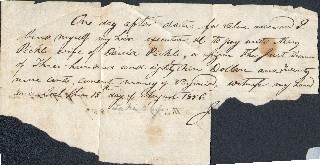 One day after date, for value received I
bind myself my heirs executors &c to pay unto Mary
Wife of David or assigns the just sum
of Three hundred and eighty three Dollars and twenty
nine cents, current money of Virginia, witness my hand
and this 15th day of August 1856